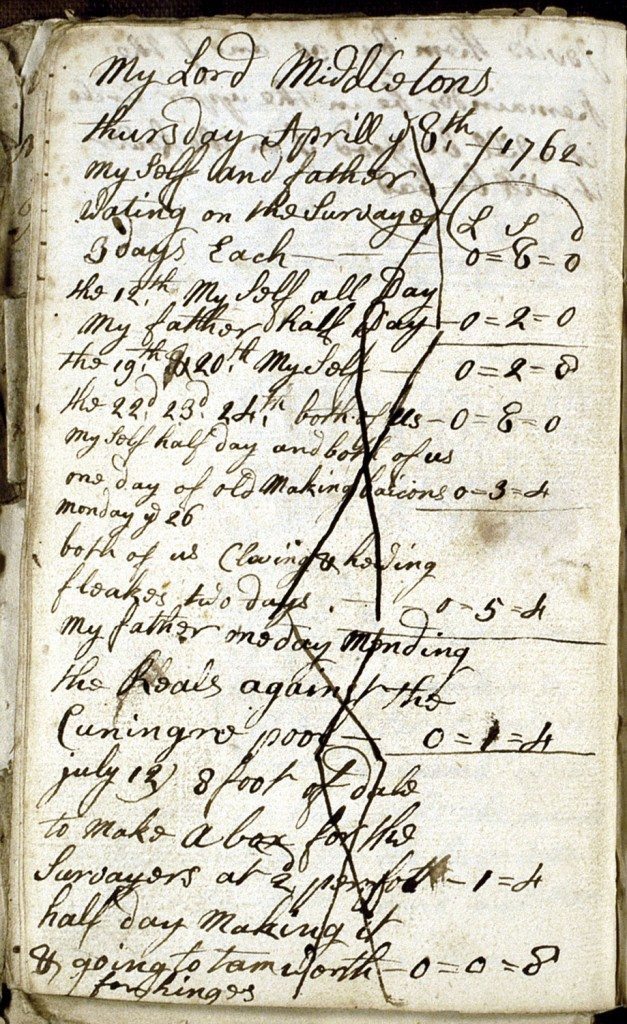 My Lord Middletons
thursday Aprill ye 8th = / 1762
my Self and father
Wating on the Survayer L S D
3 days Each — — — 0 = 8 = 0
the 12th My Self all Day
My father half Day — 0 = 2 = 0
the 19th & 20th My Self — 0 = 2 = 8
the 22d 23d 24th both of us — 0 = 8 = 0
my Self half day and both of us
one day of old Making 0 = 3 = 4
monday ye 26
both of us Claving & heding
fleakes two days . — 0 = 5 = 4
my father one day Mending
the Reals against the
Cuningre poor — 0 = 1 = 4
july 12) 8 foot of dale
to Make a box for the
Survayers at 2d per foot — 1 = 4
half day Making it
& going to tamworth — 0 = 0 = 8
for hinges